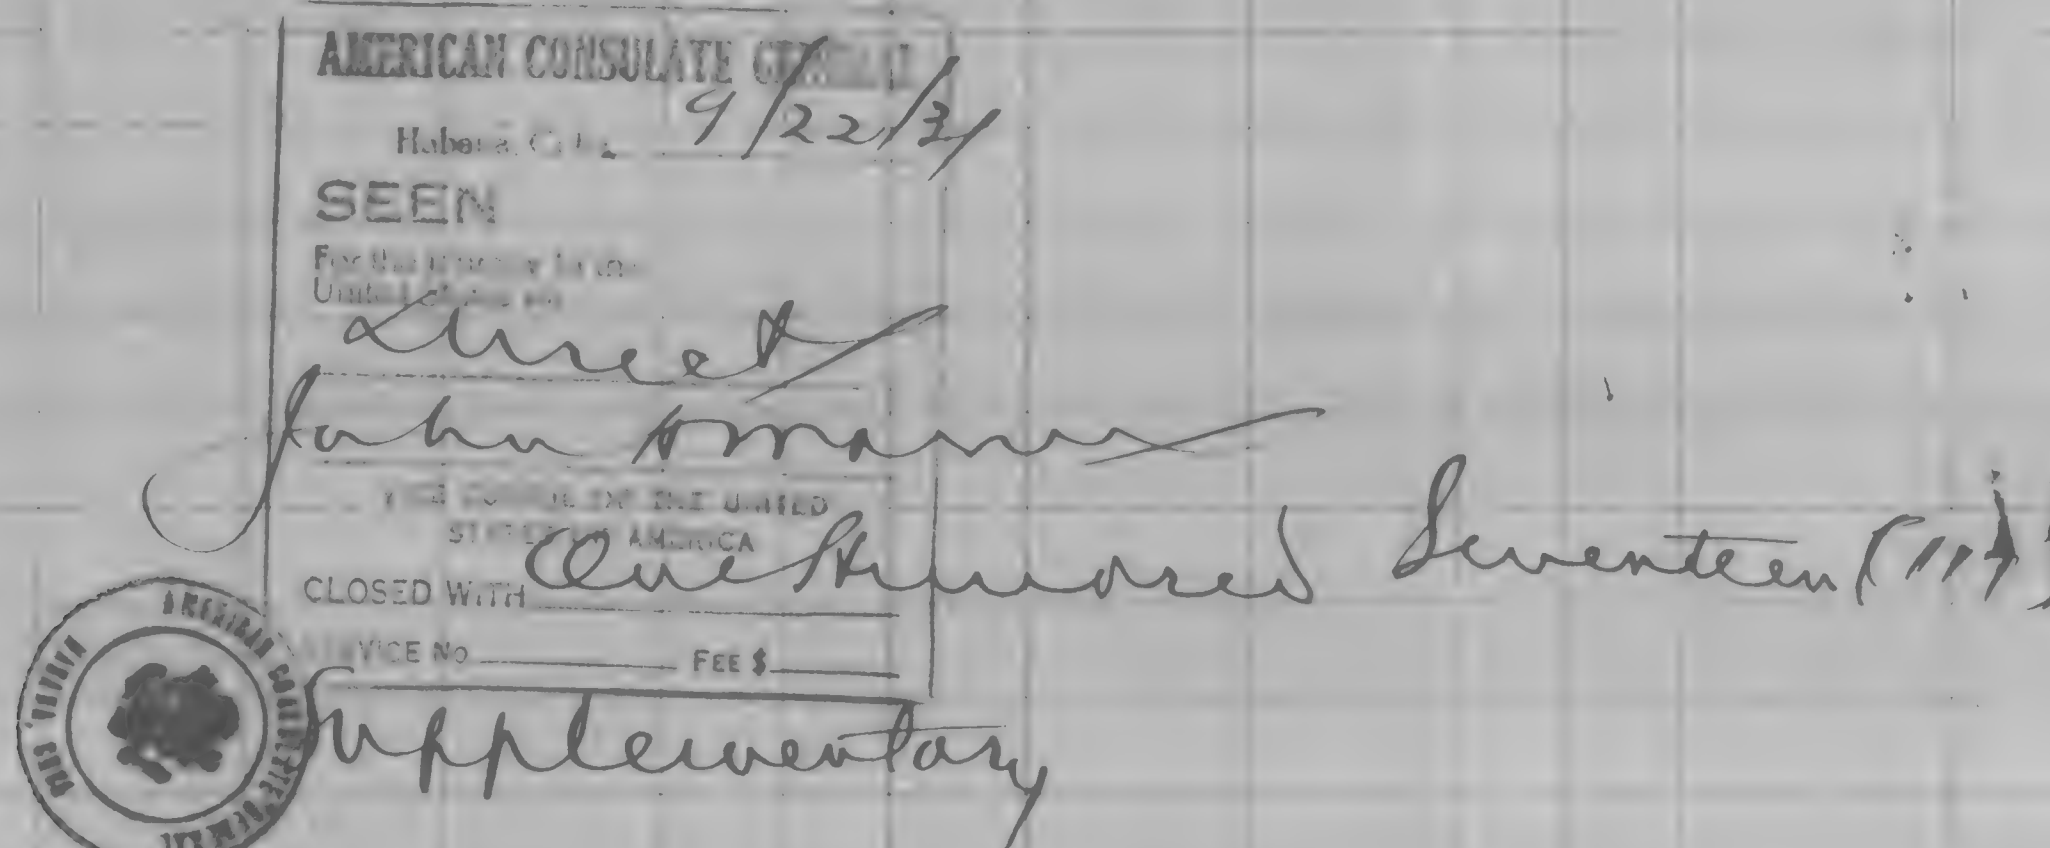 AMERICAN CONSULATE GENERAL
Habana, Cuba 9/22/31
SEEN
For the journey to the
United States via
Direct
John
VICE CONSUL OF THE UNITED
STATES OF AMERICA
CLOSED WITH One Hundred Seventeen (117)
SERVICE No FEE $
Supplementary
AMERICAN CONSULATE GENERAL
HABANA, CUBA